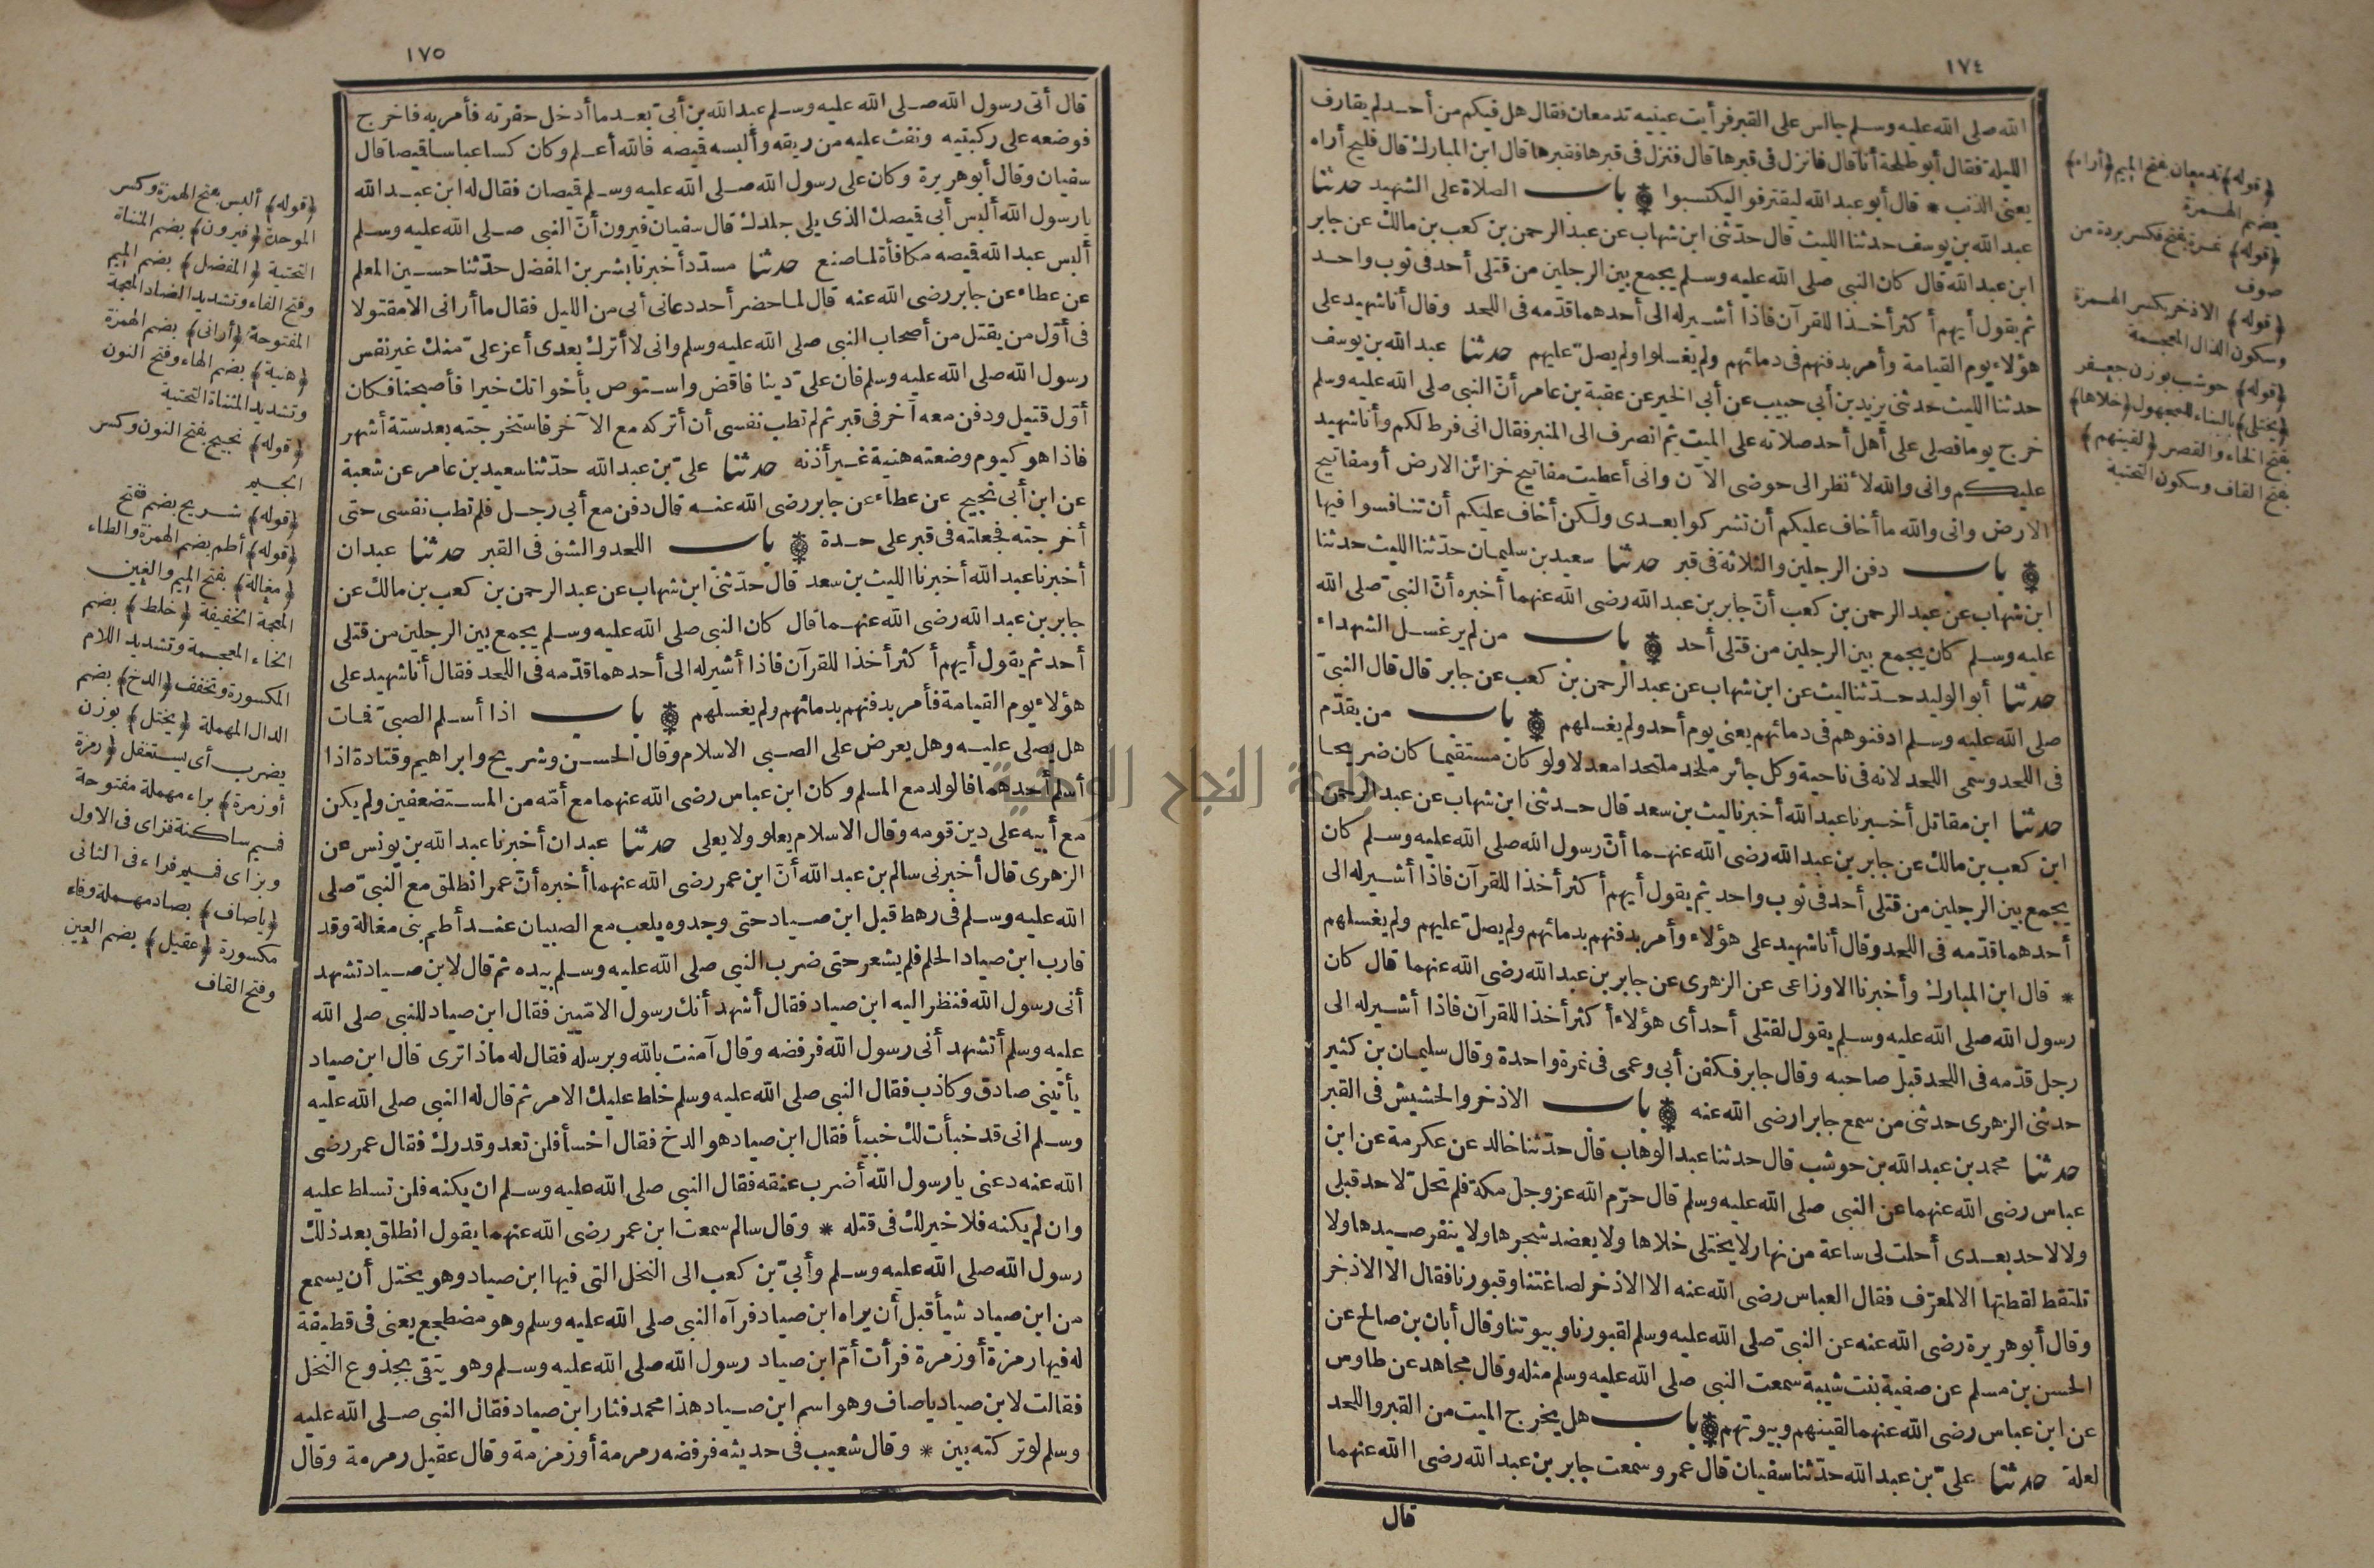 ١٧٤
الله صلى الله عليه وسلم جالس على القبر فرأيت عينيه تدمعان فقال هل فيكم من أحد لم يقارف
الليلة فقال أبو طلحة أنا قال فانزل فى قبرها قال فنزل فى قبرها فقبرها قال ابن المبارك قال فليح أراه
يعنى الذنب * قال أبو عبد الله ليقترفوا ليكتسبوا باب الصلاة على الشهيد حدثنا
عبد الله بن يوسف حدثنا الليث قال حدّثنى ابن شهاب عن عبد الرحمن بن كعب بن مالك عن جابر
ابن عبد الله قال كان النبى صلى الله عليه وسلم يجمع بين الرجلين من قتلى أحد فى ثوب واحد
ثم يقول أيهم أكثر أخذا للقرآن فاذا أشير له الى أحدهما قدّمه فى اللحد وقال أنا شهيد على
هؤلاء يوم القيامة وأمر بدفنهم فى دمائهم ولم يغسلوا ولم يصلّ عليهم حدثنا عبد الله بن يوسف
حدثنا الليث حدثنى يزيد بن أبى حبيب عن أبى الخير عن عقبة بن عامر أنّ النبى صلى الله عليه وسلم
خرج يوما فصلى على أهل أحد صلاته على الميت ثم انصرف الى المنبر فقال انى فرط لكم وأنا شهيد
عليكم وانى والله لأنظر الى حوضى الآن وانى أعطيت مفاتيح خزائن الارض أو مفاتيح
الارض وانى والله ما أخاف عليكم أن تشركوا بعدى ولكن أخاف عليكم أن تنافسوا فيها
باب دفن الرجلين والثلاثة فى قبر حدثنا سعيد بن سليمان حدّثنا الليث حدثنا
ابن شهاب عن عبد الرحمن بن كعب أنّ جابر بن عبد الله رضى الله عنهما أخبره أنّ النبىّ صلى الله
عليه وسلم كان يجمع بين الرجلين من قتلى أحد باب من لم ير غسل الشهداء
حدثنا أبو الوليد حدّثنا ليث عن ابن شهاب عن عبد الرحمن بن كعب عن جابر قال قال النبىّ
صلى الله عليه وسلم ادفنوهم فى دمائهم يعنى يوم أحد ولم يغسلهم باب من يقدّم
فى اللحد وسمى اللحد لانه فى ناحية وكل جائر ملحد ملتحدا معدلا ولو كان مستقيما كان ضريحا
حدثنا ابن مقاتل أخبرنا عبد الله أخبرنا ليث بن سعد قال حدثنى ابن شهاب عن عبد الرحمن
ابن كعب بن مالك عن جابر بن عبد الله رضى الله عنهما أنّ رسول الله صلى الله عليه وسلم كان
يجمع بين الرجلين من قتلى أحد فى ثوب واحد ثم يقول أيهم أكثر أخذا للقرآن فاذا أشير له الى
أحدهما قدّمه فى اللحد وقال أنا شهيد على هؤلاء وأمر بدفنهم بدمائهم ولم يصلّ عليهم ولم يغسلهم
* قال ابن المبارك وأخبرنا الاوزاعى عن الزهرى عن جابر بن عبد الله رضى الله عنهما قال كان
رسول الله صلى الله عليه وسلم يقول لقتلى أحد أى هؤلاء أكثر أخذا للقرآن فاذا أشير له الى
رجل قدّمه فى اللحد قبل صاحبه وقال جابر فكفن أبى وعمى فى نمرة واحدة وقال سليمان بن كثير
حدثنى الزهرى حدثنى من سمع جابرا رضى الله عنه باب الاذخر والحشيش فى القبر
حدثنا محمد بن عبد الله بن حوشب قال حدثنا عبد الوهاب قال حدّثنا خالد عن عكرمة عن ابن
عباس رضى الله عنهما عن النبى صلى الله عليه وسلم قال حرّم الله عز وجل مكة فلم تحلّ لاحد قبلى
ولا لاحد بعدى أحلت لى ساعة من نهار لا يختلى خلاها ولا يعضد شجرها ولا ينفر صيدها ولا
تلتقط لقطتها الا لمعرّف فقال العباس رضى الله عنه الا الاذخر لصاغتنا وقبورنا فقال الا الاذخر
وقال أبو هريرة رضى الله عنه عن النبىّ صلى الله عليه وسلم لقبورنا وبيوتنا وقال أبان بن صالح عن
الحسن بن مسلم عن صفية بنت شيبة سمعت النبى صلى الله عليه وسلم مثله وقال مجاهد عن طاوس
عن ابن عباس رضى الله عنهما لقينهم وبيوتهم باب هل يخرج الميت من القبر واللحد
لعلة حدثنا علىّ بن عبد الله حدّثنا سفيان قال عمرو سمعت جابر بن عبد الله رضى الله عنهما
قال
(قوله) تدمعان بفتح الميم (أراه)
بضم الهمزة
(قوله) نمرة بفتح فكسر بردة من
صوف
(قوله) الاذخر بكسر الهمزة
وسكون الذال المعجمة
(قوله) حوشب بوزن جعفر
(يختلى) بالبناء للمجهول (خلاها)
بفتح الخاء والقصر (لقينهم)
بفتح القاف وسكون التحتية
١٧٥
قال أتى رسول الله صلى الله عليه وسلم عبد الله بن أبىّ بعد ما أدخل حفرته فأمر به فاخرج
فوضعه على ركبتيه ونفث عليه من ريقه وألبسه قميصه فالله أعلم وكان كسا عباسا قميصا قال
سفيان وقال أبو هريرة وكان على رسول الله صلى الله عليه وسلم قميصان فقال له ابن عبد الله
يا رسول الله ألبس أبى قميصك الذى يلى جلدك قال سفيان فيرون أنّ النبى صلى الله عليه وسلم
ألبس عبد الله قميصه مكافأة لما صنع حدثنا مسدّد أخبرنا بشر بن المفضل حدّثنا حسين المعلم
عن عطاء عن جابر رضى الله عنه قال لما حضر أحد دعانى أبى من الليل فقال ما أرانى الا مقتولا
فى أوّل من يقتل من أصحاب النبى صلى الله عليه وسلم وانى لا أترك بعدى أعز علىّ منك غير نفس
رسول الله صلى الله عليه وسلم فان علىّ دينا فاقض واستوص بأخواتك خيرا فأصبحنا فكان
أوّل قتيل ودفن معه آخر فى قبر ثم لم تطب نفسى أن أتركه مع الآخر فاستخرجته بعد ستة أشهر
فاذا هو كيوم وضعته هنية غير أذنه حدثنا علىّ بن عبد الله حدّثنا سعيد بن عامر عن شعبة
عن ابن أبى نجيح عن عطاء عن جابر رضى الله عنه قال دفن مع أبى رجل فلم تطب نفسى حتى
أخرجته فجعلته فى قبر على حدة باب اللحد والشق فى القبر حدثنا عبدان
أخبرنا عبد الله أخبرنا الليث بن سعد قال حدّثنى ابن شهاب عن عبد الرحمن بن كعب بن مالك عن
جابر بن عبد الله رضى الله عنهما قال كان النبى صلى الله عليه وسلم يجمع بين الرجلين من قتلى
أحد ثم يقول أيهم أكثر أخذا للقرآن فاذا أشير له الى أحدهما قدّمه فى اللحد فقال أنا شهيد على
هؤلاء يوم القيامة فأمر بدفنهم بدمائهم ولم يغسلهم باب اذا أسلم الصبىّ فمات
هل يصلى عليه وهل يعرض على الصبى الاسلام وقال الحسن وشريح وابراهيم وقتادة اذا
أسلم أحدهما فالولد مع المسلم وكان ابن عباس رضى الله عنهما مع أمّه من المستضعفين ولم يكن
مع أبيه على دين قومه وقال الاسلام يعلو ولا يعلى حدثنا عبدان أخبرنا عبد الله بن يونس عن
الزهرى قال أخبرنى سالم بن عبد الله أنّ ابن عمر رضى الله عنهما أخبره أنّ عمر انطلق مع النبىّ صلى
الله عليه وسلم فى رهط قبل ابن صياد حتى وجدوه يلعب مع الصبيان عند أطم بنى مغالة وقد
قارب ابن صياد الحلم فلم يشعر حتى ضرب النبى صلى الله عليه وسلم بيده ثم قال لابن صياد تشهد
أنى رسول الله فنظر اليه ابن صياد فقال أشهد أنك رسول الامّيين فقال ابن صياد للنبى صلى الله
عليه وسلم أتشهد أنى رسول الله فرفضه وقال آمنت بالله وبرسله فقال له ماذا ترى قال ابن صياد
يأتينى صادق وكاذب فقال النبى صلى الله عليه وسلم خلط عليك الامر ثم قال له النبى صلى الله عليه
وسلم انى قد خبأت لك خبيأ فقال ابن صياد هو الدخ فقال اخسأ فلن تعدو قدرك فقال عمر رضى
الله عنه دعنى يا رسول الله أضرب عنقه فقال النبى صلى الله عليه وسلم ان يكنه فلن تسلط عليه
وان لم يكنه فلا خير لك فى قتله * وقال سالم سمعت ابن عمر رضى الله عنهما يقول انطلق بعد ذلك
رسول الله صلى الله عليه وسلم وأبىّ بن كعب الى النخل التى فيها ابن صياد وهو يختل أن يسمع
من ابن صياد شيأ قبل أن يراه ابن صياد فرآه النبى صلى الله عليه وسلم وهو مضطجع يعنى فى قطيفة
له فيها رمزة أو زمرة فرأت أمّ ابن صياد رسول الله صلى الله عليه وسلم وهو يتقى بجذوع النخل
فقالت لابن صياد يا صاف وهو اسم ابن صياد هذا محمد فثار ابن صياد فقال النبى صلى الله عليه
وسلم لو تركته بين * وقال شعيب فى حديثه فرفضه رمرمة أو زمزمة وقال عقيل رمرمة وقال
(قوله) ألبس بفتح الهمزة وكسر
الموحدة (فيرون) بضم المثناة
التحتية (المفضل) بضم الميم
وفتح الفاء وتشديد الضاد المعجمة
المفتوحة (أرانى) بضم الهمزة
(هنية) بضم الهاء وفتح النون
وتشديد المثناة التحتية
(قوله) نجيح بفتح النون وكسر
الجيم
(قوله) شريح بضم ففتح
(قوله) أطم بضم الهمزة والطاء
(مغالة) بفتح الميم والغين
المعجمة الخفيفة (خلط) بضم
الخاء المعجمة وتشديد اللام
المكسورة وتخفف (الدخ) بضم
الدال المهملة (يختل) بوزن
يضرب أى يستغفل (رمزة
أو زمرة) براء مهملة مفتوحة
فميم ساكنة فزاى فى الاول
وبزاى فميم فراء فى الثانى
(يا صاف) بصاد مهملة وفاء
مكسورة (عقيل) بضم العين
وفتح القاف
جامعة النجاح الوطنية